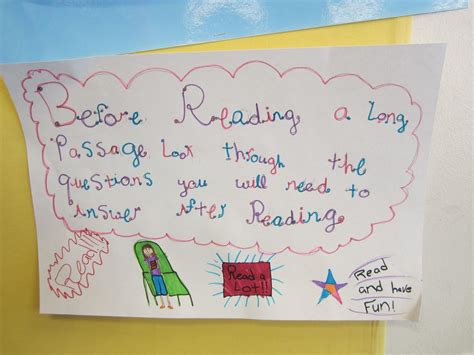 Before Reading a Long
Passage Look through the
questions you will need to
answer after Reading.
Read!!
Read a
Lot!!
Read
and have
Fun!